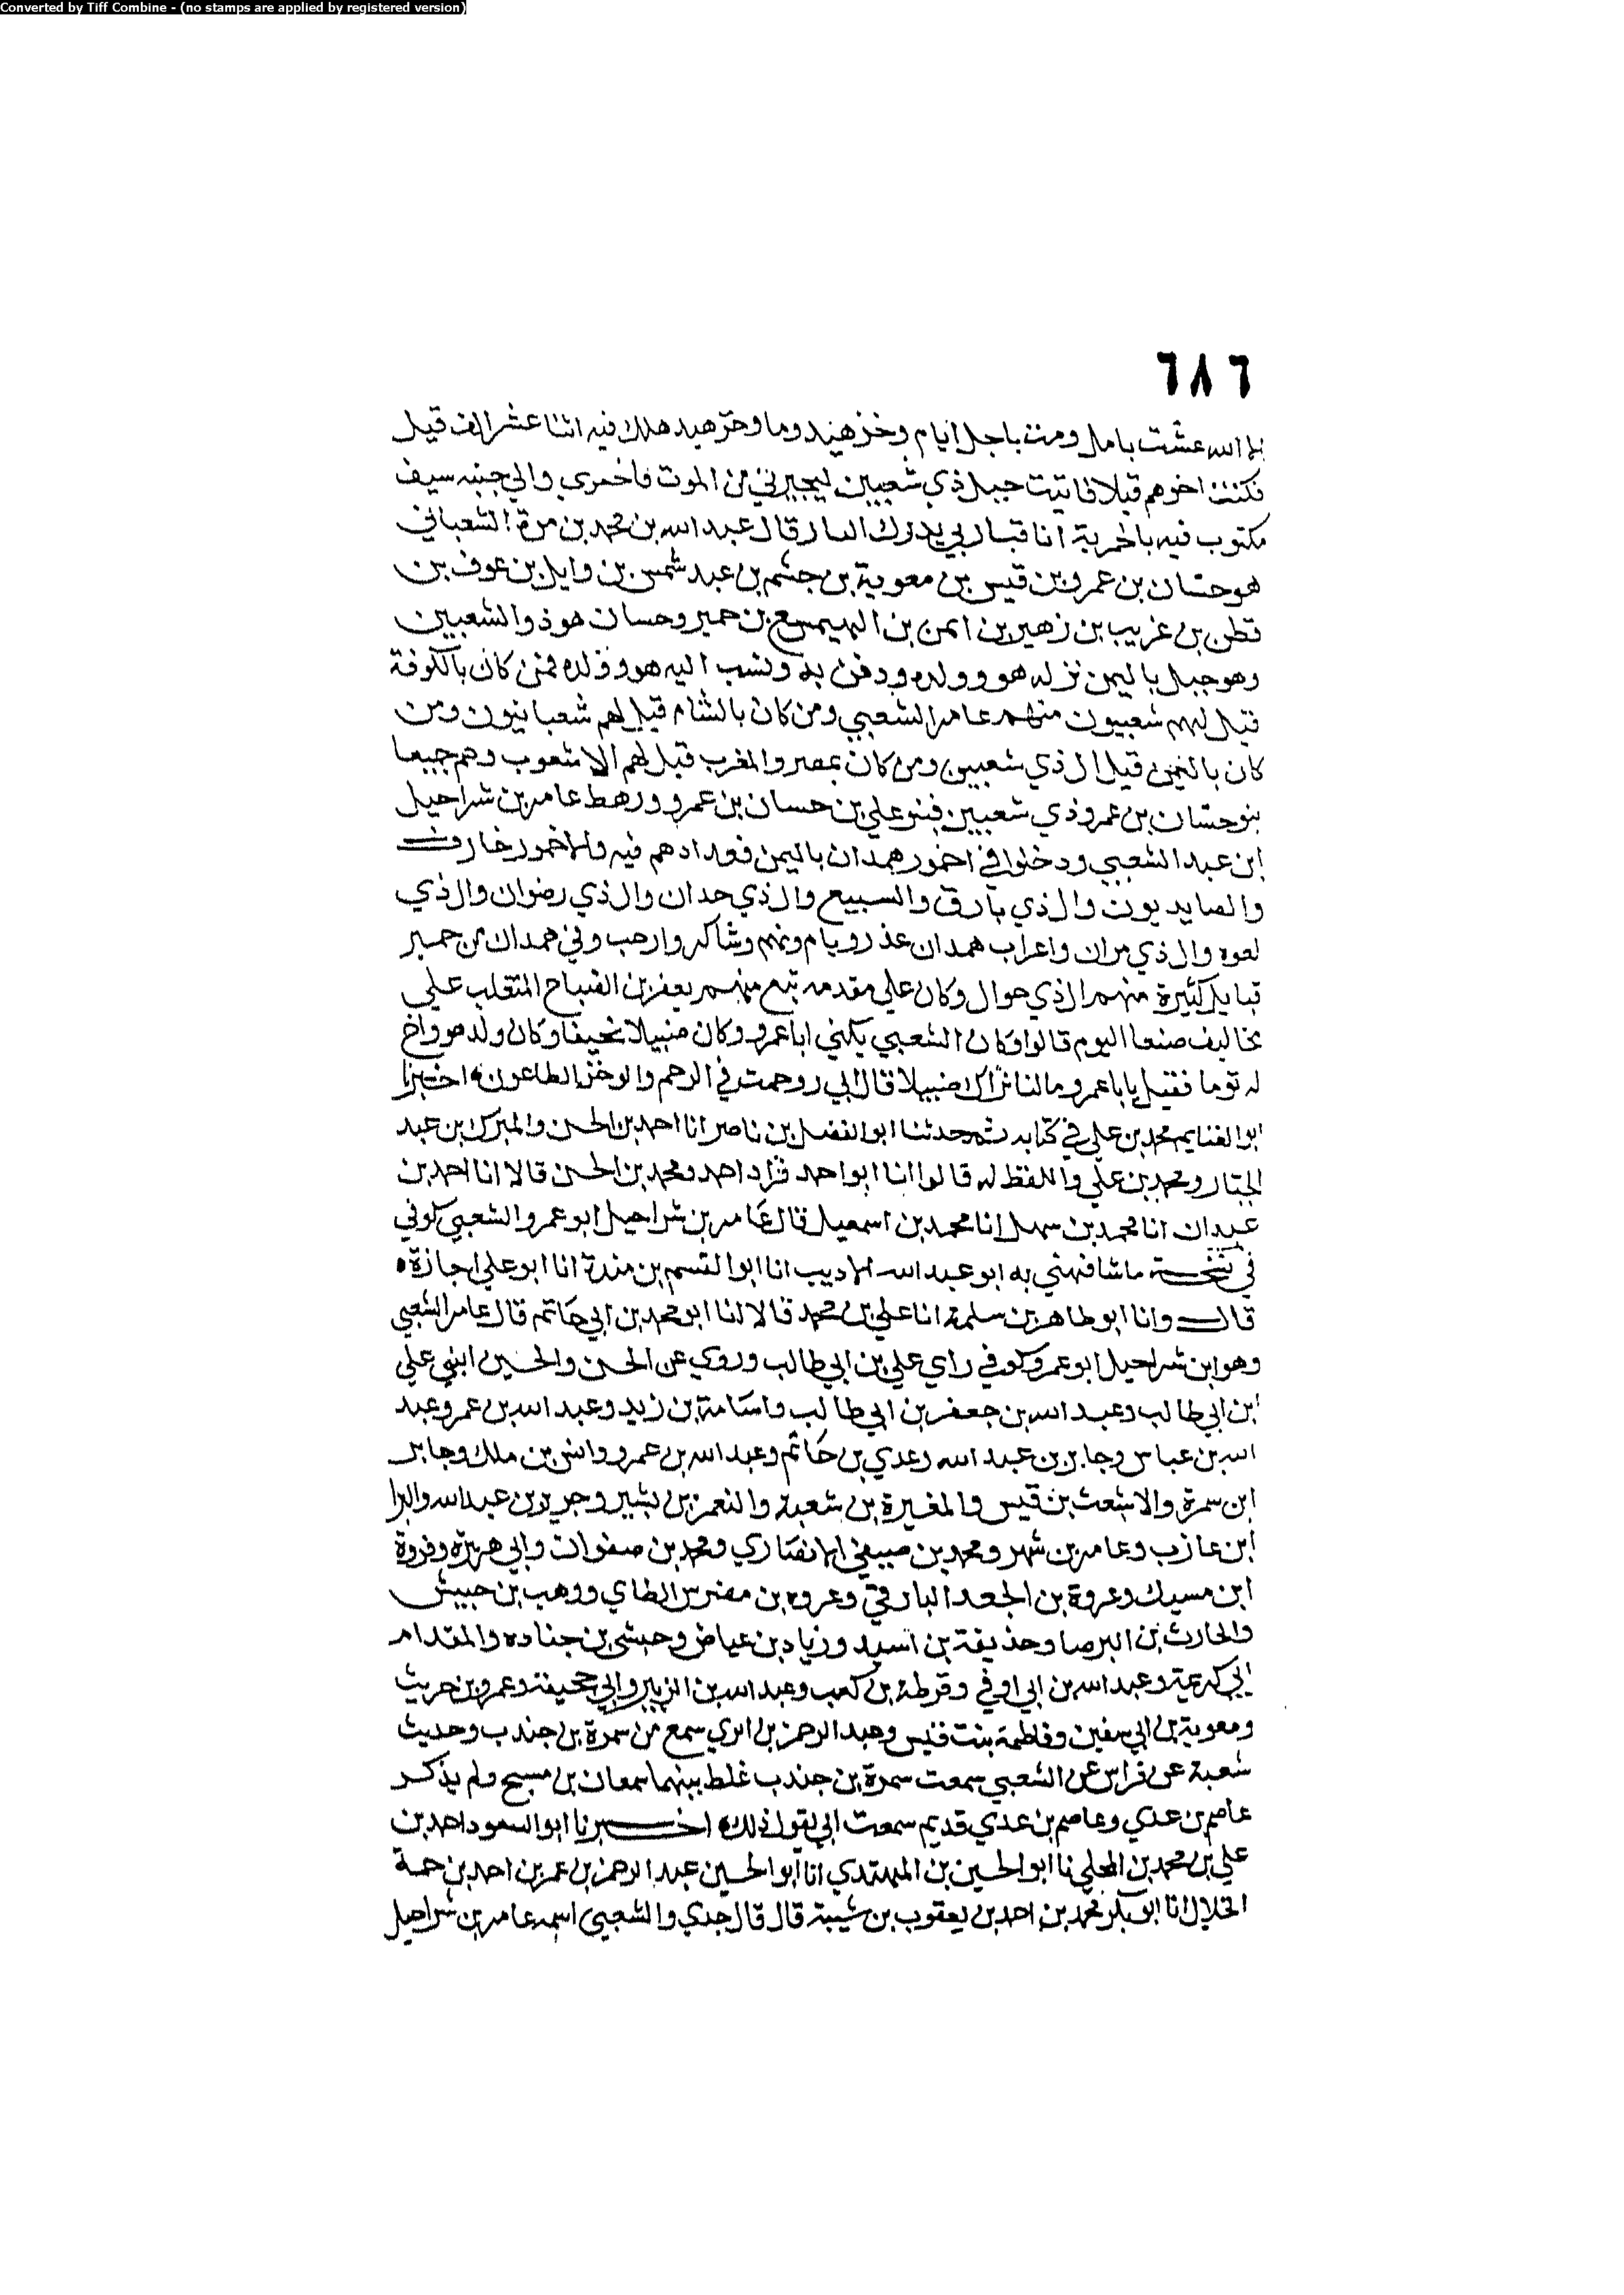 Converted by Tiff Combine - (no stamps are applied by registered version)
٦٨٦
الا الله عشت بامل ومت باجل ايام وخز هيد وما وخز هيد هلك فيه اثنا عشر الف قيل
فكنت اخرهم قيلا فاتيت جبل ذي شعبين ليجيرني من الموت فاخفرني والي جنبه سيف
مكتوب فيه بالحميرية انا قبار بي يدرك الثار قال عبد الله بن محمد بن مرة الشعباني
هو حسان بن عمرو بن قيس بن معوية بن جشم بن عبد شمس بن وايل بن عوف بن
قطن بن عريب بن زهير بن ايمن بن الهميسع بن حمير وحسان هو ذو الشعبين
وهو جبل باليمن نزله هو وولده ودفن به ونسب اليه هو وولده فمن كان بالكوفة
قيل لهم شعبيون منهم عامر الشعبي ومن كان بالشام قيل لهم شعبانيون ومن
كان باليمن قيل ال ذي شعبين ومن كان بمصر والمغرب قيل لهم الاشعوب وهم جميعا
بنو حسان بن عمرو ذي شعبين فبنو علي بن حسان بن عمرو ورهط عامر بن شراحيل
ابن عبد الشعبي ودخلوا في اخمور همدان باليمن فعدادهم فيه والاخمور خارف
والصايديون وال ذي بارق والسبيع وال ذي حدان وال ذي رضوان وال ذي
لعوه وال ذي مران واعراب همدان عذر ويام ونهم وشاكر وارحب وفي همدان من حمير
قبايل كثيرة منهم ال ذي حوال وكان علي مقدمه تبع منهم يعفر بن الصباح المتغلب علي
مخاليف صنعا اليوم قالوا وكان الشعبي يكني ابا عمرو وكان ضييلا نحيفا وكان ولد هو واخ
له توما فقيل يا با عمرو مالنا نراك ضييلا قال اني زوحمت في الرحم والوخز الطاعون اخبرنا
ابو الغنايم محمد بن علي في كتابه ثم حدثنا ابو الفضل بن ناصر انا احمد بن الحسن والمبرك بن عبد
الجبار ومحمد بن علي واللفظ له قالوا انا ابو احمد زاد احمد ومحمد بن الحسن قالا انا احمد بن
عبدان انا محمد بن سهل انا محمد بن اسمعيل قال عامر بن شراحيل ابو عمرو الشعبي كوفي
في نسخة ما شافهني به ابو عبد الله الاديب انا ابو القسم بن مندة انا ابو علي اجازة
قال وانا ابو طاهر بن سلمة انا علي بن محمد قالا انا ابو محمد بن ابي حاتم قال عامر الشعبي
وهو ابن شراحيل ابو عمرو كوفي راي علي بن ابي طالب وروي عن الحسن والحسين ابني علي
ابن ابي طالب وعبد الله بن جعفر بن ابي طالب واسامة بن زيد وعبد الله بن عمر وعبد
الله بن عباس وجابر بن عبد الله وعدي بن حاتم وعبد الله بن عمرو وانس بن ملك وجابر
ابن سمرة والاشعث بن قيس والمغيرة بن شعبة والنعمن بن بشير وجرير بن عبد الله والبرا
ابن عازب وعامر بن شهر ومحمد بن صيفي الانصاري ومحمد بن صفوان وابي هريرة وفروة
ابن مسيك وعروة بن الجعد البارقي وعروه بن مضرس الطاي ووهب بن خنبش
والحارث بن البرصا وحذيفة بن اسيد وزياد بن عياض وحبشي بن جناده والمقدام
ابي كريمة وعبد الله بن ابي اوفي وقرظة بن كعب وعبد الله بن الزبير وابي جحيفة وعمرو بن حريث
ومعوية بن ابي سفين وفاطمة بنت قيس وعبد الرحمن بن ابزي سمع من سمرة بن جندب وحديث
شعبة عن فراس عن الشعبي سمعت سمرة بن جندب غلط بينهما سمعان بن مشنج ولم يذكر
عاصم بن عدي وعاصم بن عدي قديم سمعت ابي يقول ذلك اخبرنا ابو السعود احمد بن
علي بن محمد بن المجلي نا ابو الحسين بن المهتدي انا ابو الحسين عبد الرحمن بن عمر بن احمد بن حمة
الخلال انا ابو بكر محمد بن احمد بن يعقوب بن شيبة قال قال جدي والشعبي اسمه عامر بن شراحيل